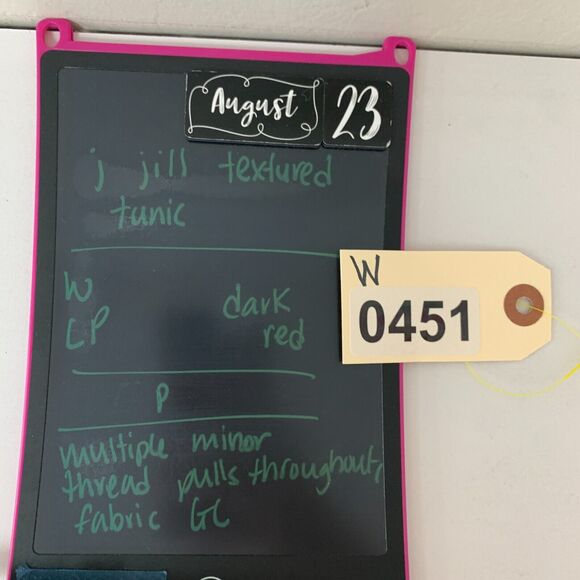 August 23
j jill textured
tunic
W
LP
dark
red
P
multiple minor
thread pulls throughout,
fabric GC
W
0451